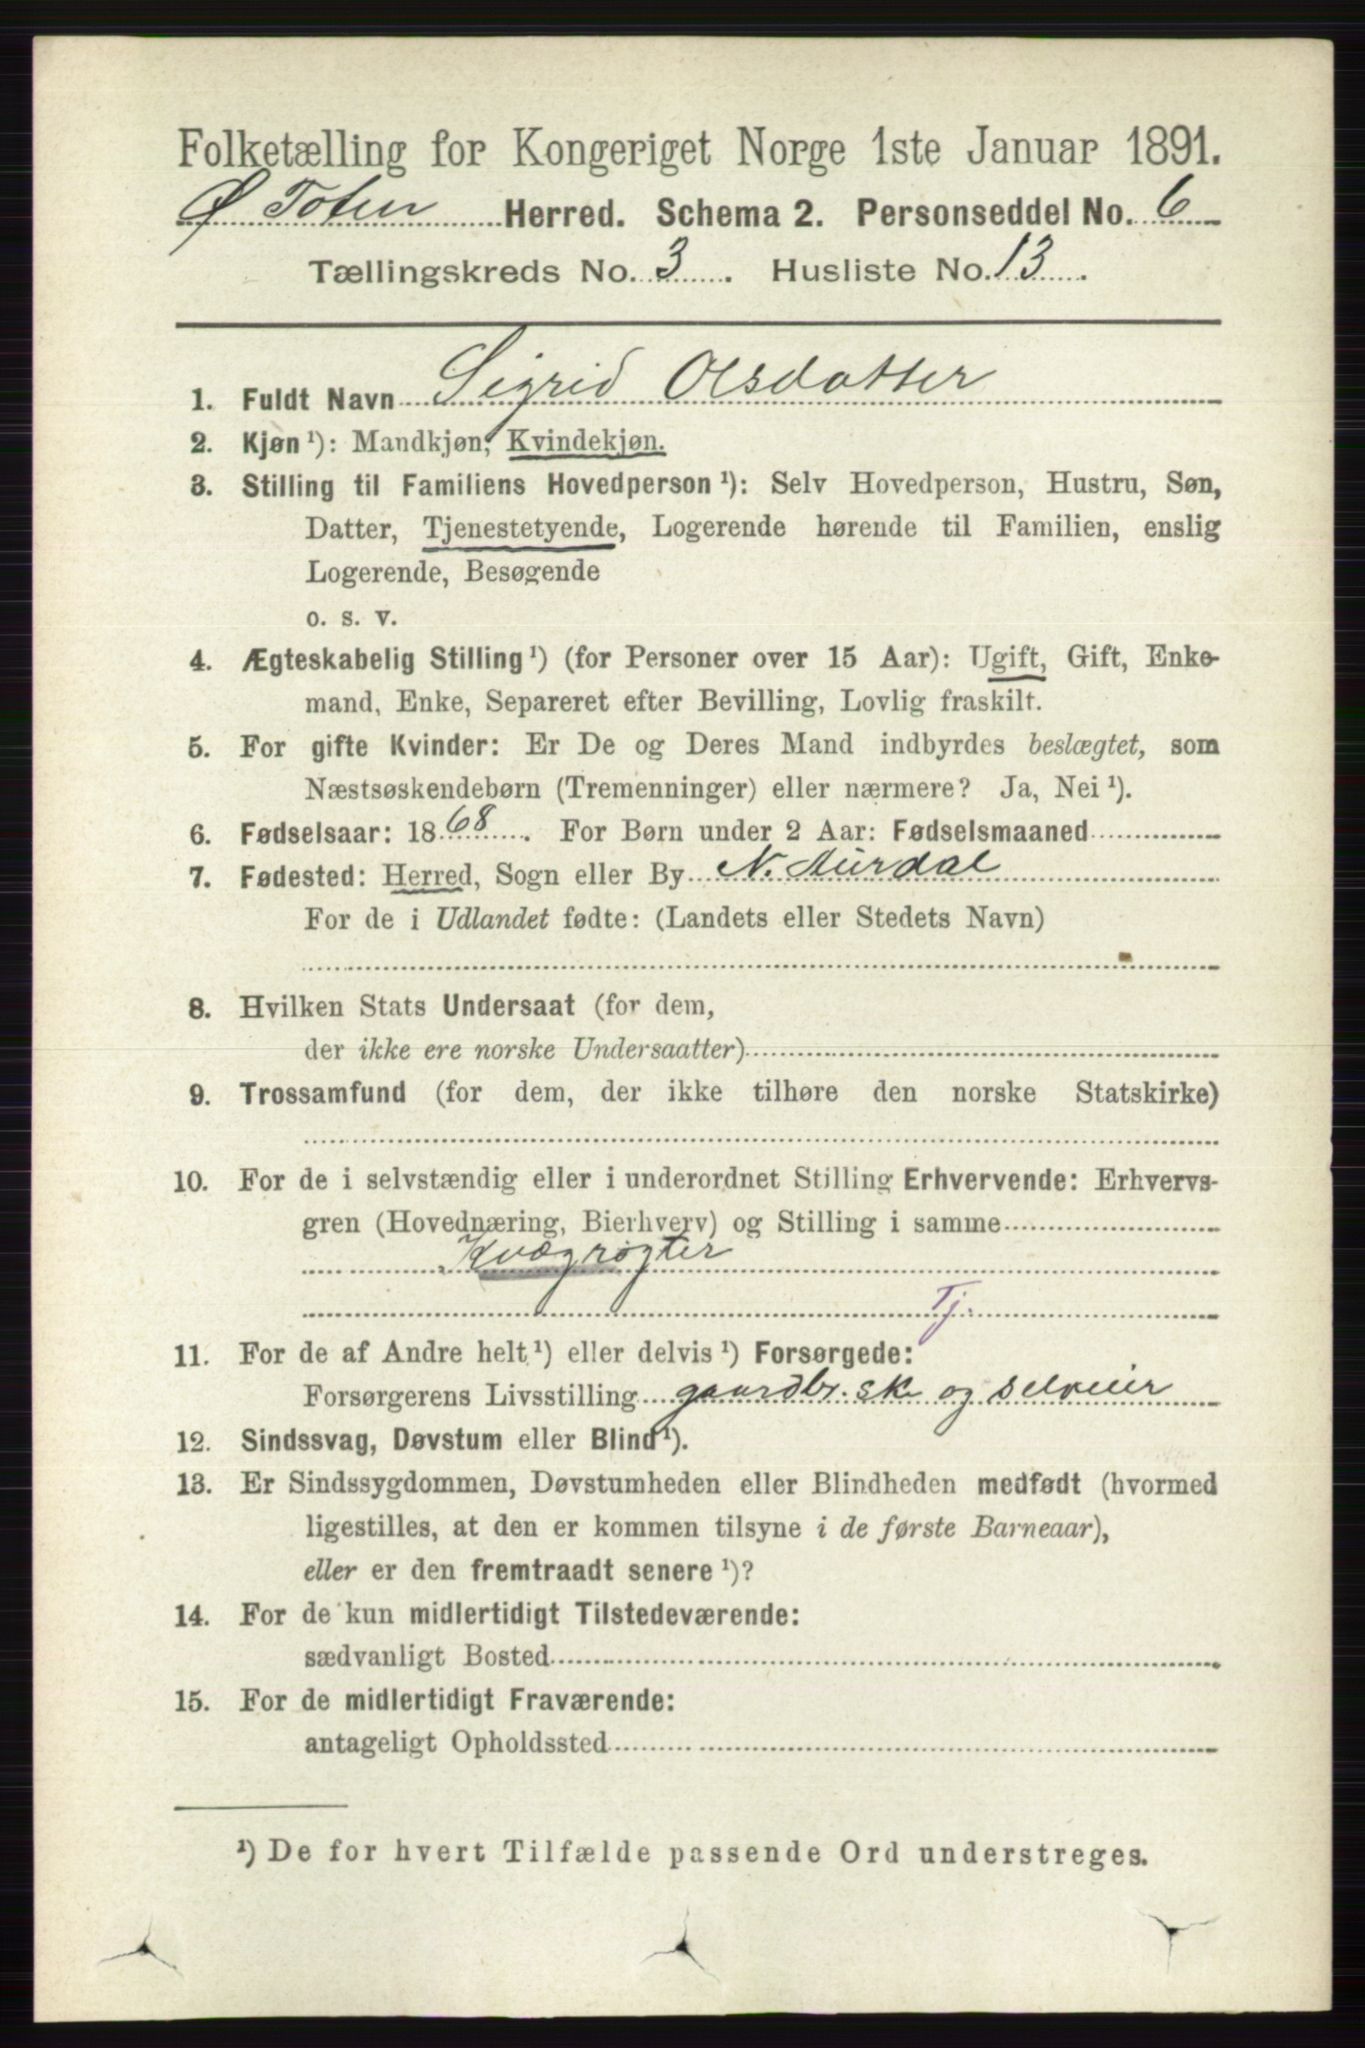 Folketælling for Kongeriget Norge 1ste Januar 1891.
Ø Toten Herred. Schema 2. Personseddel No. 6
Tællingskreds No. 3. Husliste No. 13.
1. Fuldt Navn Sigrid Olsdatter
2. Kjøn ¹): Mandkjøn, Kvindekjøn.
3. Stilling til Familiens Hovedperson ¹): Selv Hovedperson, Hustru, Søn,
Datter, Tjenestetyende, Logerende hørende til Familien, enslig
Logerende, Besøgende
o. s. v.
4. Ægteskabelig Stilling ¹) (for Personer over 15 Aar): Ugift, Gift, Enke-
mand, Enke, Separeret efter Bevilling, Lovlig fraskilt.
5. For gifte Kvinder: Er De og Deres Mand indbyrdes beslægtet, som
Næstsøskendebørn (Tremenninger) eller nærmere? Ja, Nei ¹).
6. Fødselsaar: 1868. For Børn under 2 Aar: Fødselsmaaned
7. Fødested: Herred, Sogn eller By N. Aurdal
For de i Udlandet fødte: (Landets eller Stedets Navn)
8. Hvilken Stats Undersaat (for dem,
der ikke ere norske Undersaatter)
9. Trossamfund (for dem, der ikke tilhøre den norske Statskirke)
10. For de i selvstændig eller i underordnet Stilling Erhvervende: Erhvervs-
gren (Hovednæring, Bierhverv) og Stilling i samme
Kvægrøgter
Tj.
11. For de af Andre helt ¹) eller delvis ¹) Forsørgede:
Forsørgerens Livsstilling gaardbr. sk og selveier
12. Sindssvag, Døvstum eller Blind ¹).
13. Er Sindssygdommen, Døvstumheden eller Blindheden medfødt (hvormed
ligestilles, at den er kommen tilsyne i de første Barneaar),
eller er den fremtraadt senere ¹)?
14. For de kun midlertidigt Tilstedeværende:
sædvanligt Bosted
15. For de midlertidigt Fraværende:
antageligt Opholdssted
¹) De for hvert Tilfælde passende Ord understreges.